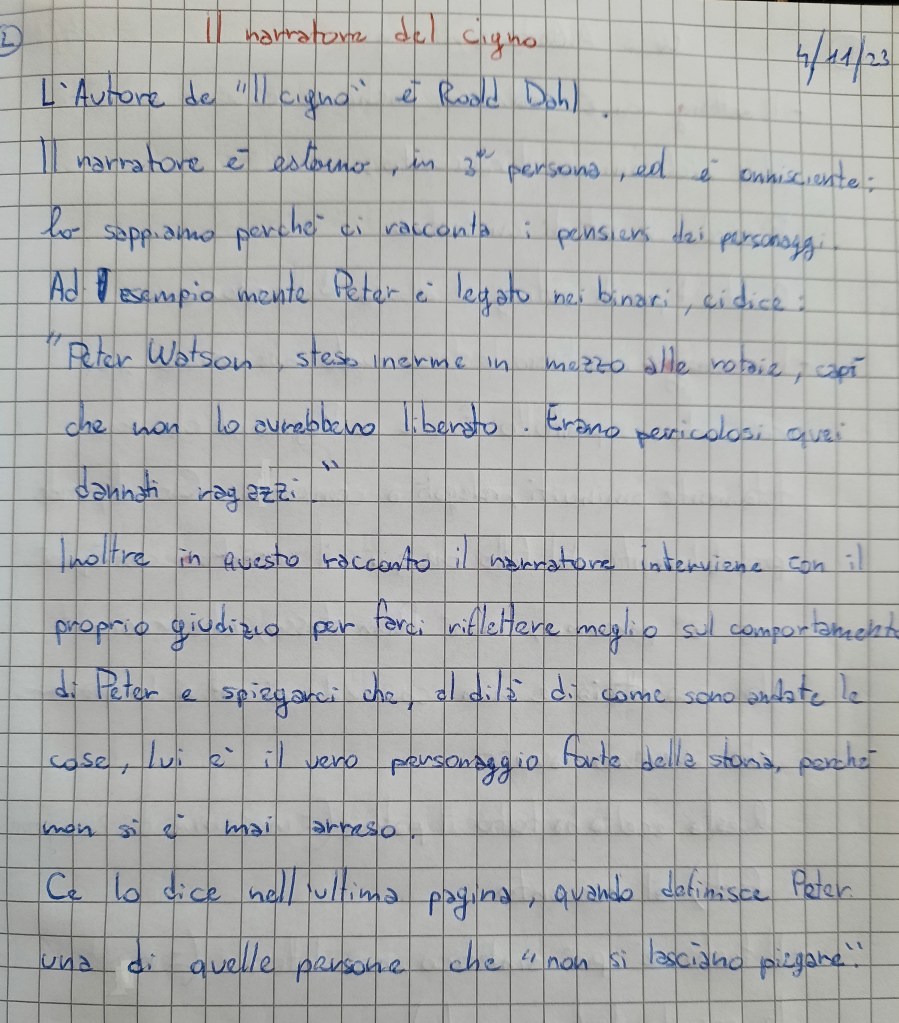 2
Il narratore del cigno
4/11/23
L'Autore de "Il cigno" è Roald Dahl.
Il narratore è esterno, in 3ª persona, ed è onnisciente:
lo sappiamo perché ci racconta i pensieri dei personaggi.
Ad esempio mente Peter è legato nei binari, ci dice:
"Peter Watson, steso inerme in mezzo alle rotaie, capì
che non lo avrebbero liberato. Erano pericolosi quei
dannati ragazzi."
Inoltre in questo racconto il narratore interviene con il
proprio giudizio per farci riflettere meglio sul comportament
di Peter e spiegarci che, al dilà di come sono andate le
cose, lui è il vero personaggio forte della storia, perché
non si è mai arreso.
Ce lo dice nell'ultima pagina, quando definisce Peter
una di quelle persone che "non si lasciano piegare".